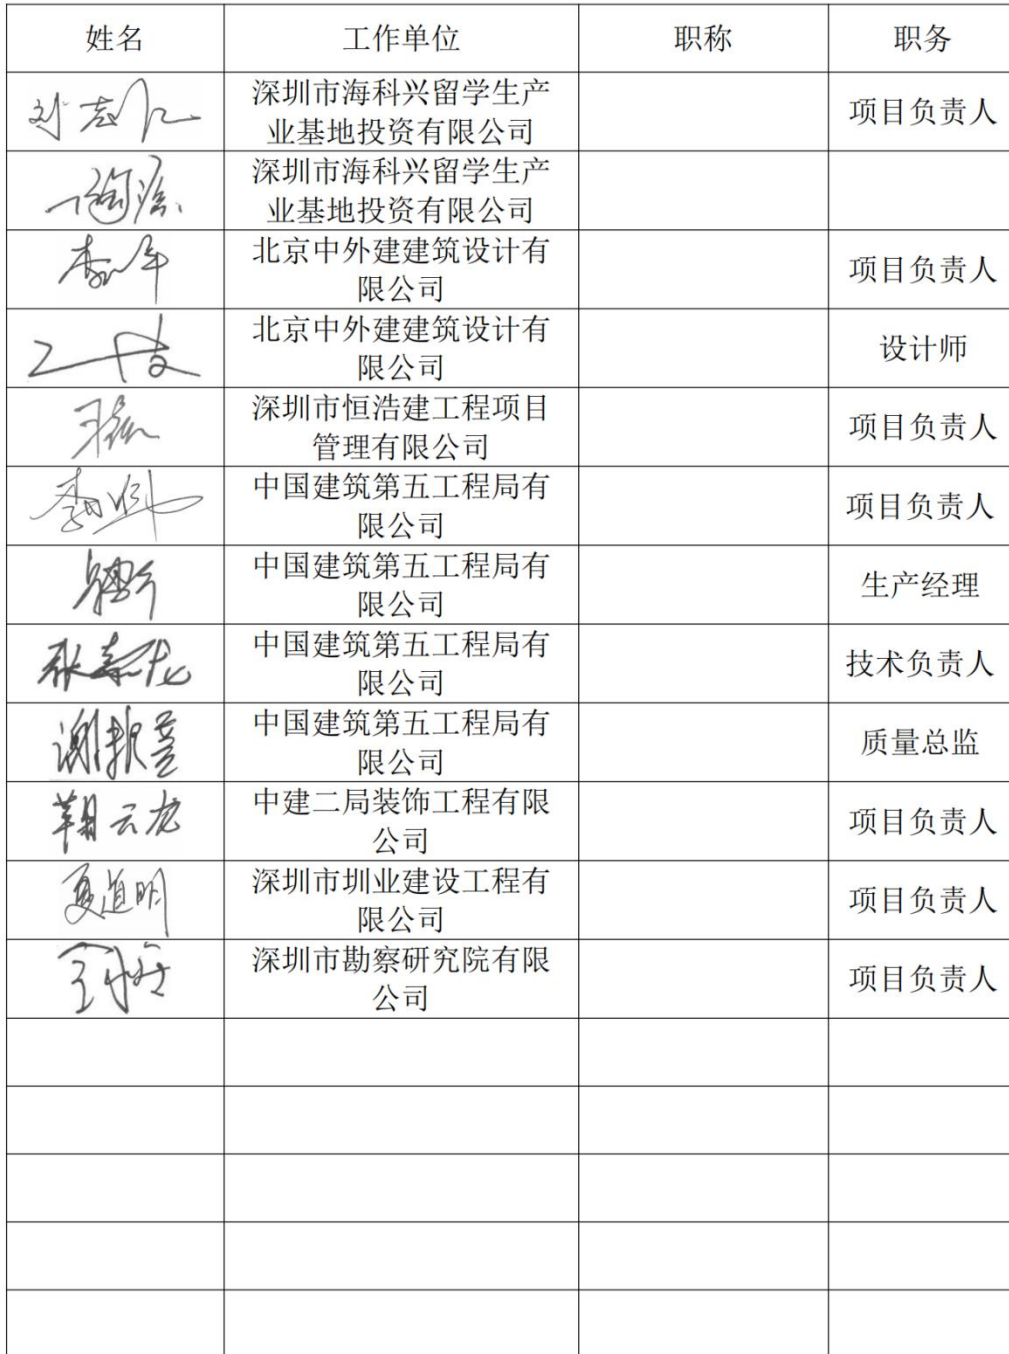 姓名 工作单位 职称 职务
刘志仁 深圳市海科兴留学生产
业基地投资有限公司 项目负责人
深圳市海科兴留学生产
业基地投资有限公司
北京中外建建筑设计有
限公司 项目负责人
北京中外建建筑设计有
限公司 设计师
深圳市恒浩建工程项目
管理有限公司 项目负责人
中国建筑第五工程局有
限公司 项目负责人
中国建筑第五工程局有
限公司 生产经理
中国建筑第五工程局有
限公司 技术负责人
中国建筑第五工程局有
限公司 质量总监
中建二局装饰工程有限
公司 项目负责人
夏道明 深圳市圳业建设工程有
限公司 项目负责人
深圳市勘察研究院有限
公司 项目负责人